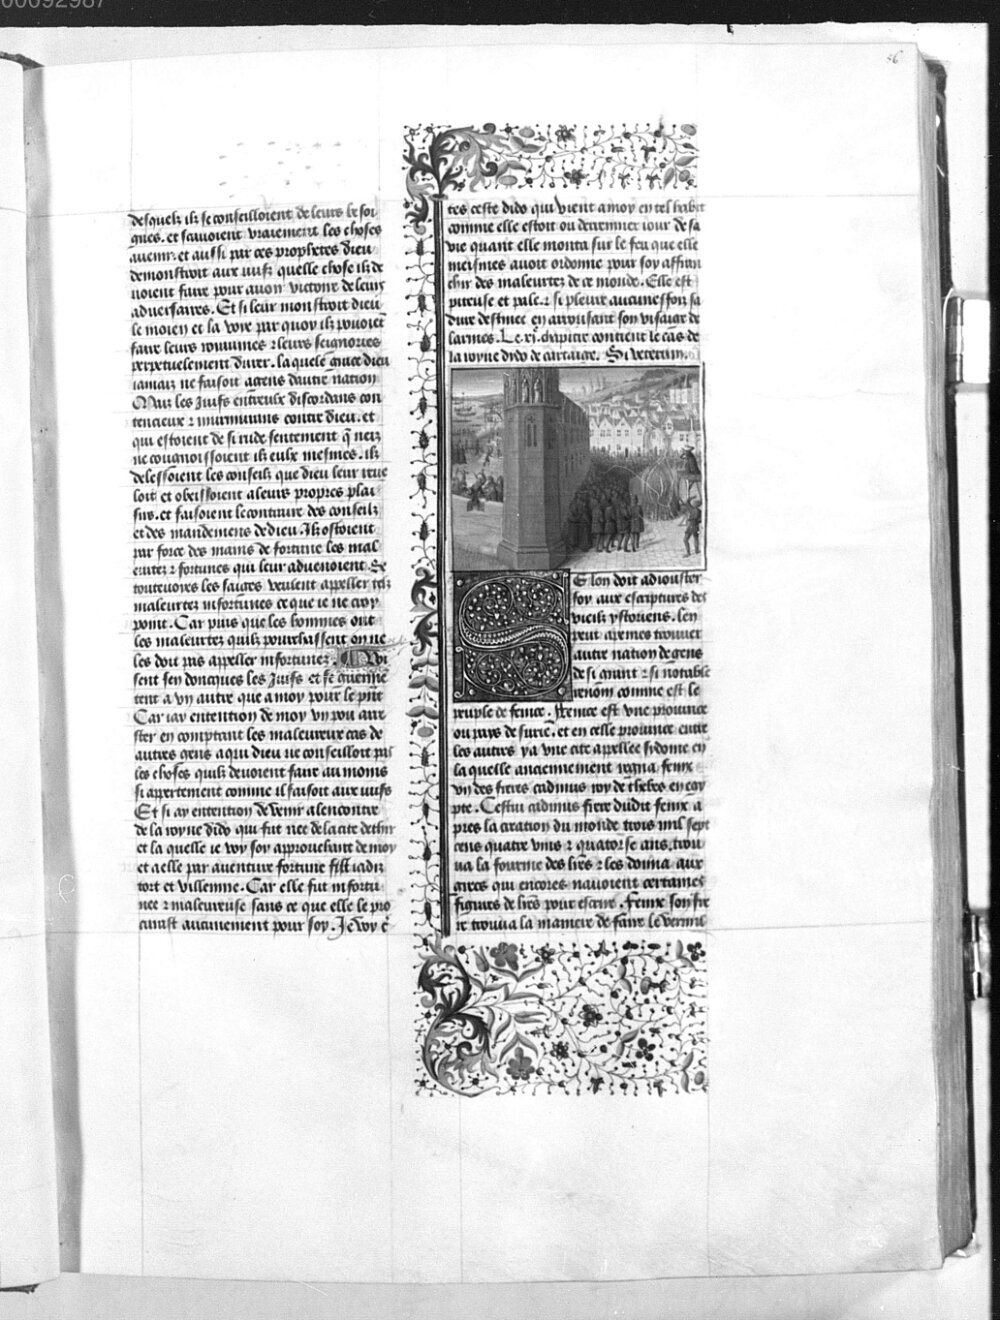 00092987
56
desquelz ilz se conseilloient de leurs besoi
gnes. et savoient vraiement les choses
avenir. et aussi par ces prophetes dieu
demonstroit aux iuifz quelle chose ilz de
voient faire pour avoir victoire de leurs
adversaires. Et si leur monstroit dieu
le moien et la voie par quoy ilz pouoiēt
faire leurs royaumes ⁊ leurs seignories
perpetuelement durer. la quele grace dieu
iamaiz ne faisoit a gens dautre nation
Maiz les Juifs entreulx discordans con
tencieux ⁊ murmurans contre dieu. et
qui estoient de si rude sentement q̄ neiz
ne cougnoissoient ilz eulx mesmes. ilz
delessoient les conseilz que dieu leur
loit et obeissoient a leurs propres plai
sirs. et faisoient le contraire des conseilz
et des mandemens de dieu. Ilz ostoient
par force des mains de fortune les mal
eurtez ⁊ fortunes qui leur advenoient Se
toutevoies les saiges veulent appeller telz
maleurtez infortunes ce que ie ne croy
point. Car puis que les hommes ont
les maleurtez quilz pourchassent on ne
les doit pas appeller infortunez. Voi
sent sen doncques les Juifs et se guermē
tent a vn autre que a moy pour le pn̄t
Car iay entention de moy vn pou arre
ster en comptant les maleureux cas de
autres gens a qui dieu ne conseilloit pas
les choses quilz devoient faire au moins
si appertement comme il faisoit aux iuifs
Et si ay entention de venir a lencontre
de la royne dido qui fut nee de la cite de thir
et la quelle ie voy soy approuchant de moy
et a elle par aventure fortune fist iadiz
tort et villennie. Car elle fut infortu
nee ⁊ maleureuse sans ce que elle le pro
curast aucunement pour soy. Je voy c̄
tes ceste dido qui vient a moy en tel habit
comme elle estoit ou derrenier iour de sa
vie quant elle monta sur le feu que elle
meismes avoit ordonne pour soy affran
chir des maleurtez de ce monde. Elle est
piteuse et pale. ⁊ si pleure aucunesfoiz sa
dure destinee en arrousant son visaige de
larmes. Le .xi.e chapitre contient le cas de
la royne dido de cartaige. Si veterum.
Se lon doit adiouster
foy aux escriptures des
vieilz ystoriens. len
peut a peines trouver
autre nation de gens
de si grant ⁊ si notable
renom comme est le
peuple de fenice. Fenice est vne province
ou pays de surie. et en celle province entre
les autres y a vne cite appellee sydome en
la quelle anciennement regna fenix
vn des freres cadmus roy de thebes en egy
pte. Cestui cadmus frere dudit fenix a
pres la creation du monde trois mil sept
cens quatre vins ⁊ quatorse ans. trou
va la fourme des lr̄es ⁊ les donna aux
grecs qui encores navoient certaines
figures de lr̄es pour escrire. Fenix son fre
re trouva la maniere de faire le vermil